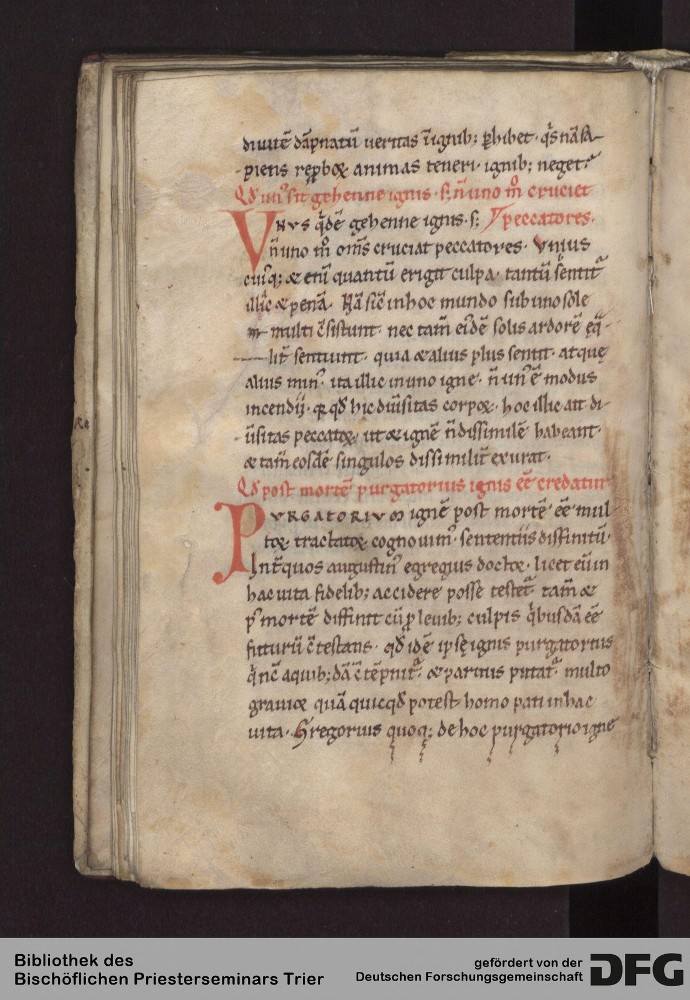 diuitē dāpnatū ueritas ī ignib; ꝑhibet · q̄s nā sa-
piens reꝓboꝝ animas teneri · ignib; neget ·
Qđ un' sit gehenne ignis · s; ñ uno m̊ cruciet
VNVS q̄dē gehenne ignis · s; peccatores ·
ñ uno m̊ om̄s cruciat peccatores · Vnius
cui'q; & eni quantū erigit culpa · tantū sentit'
illic & penā · Nā sic̄ in hoc mundo sub uno sole
multi c̄sistunt · nec tam̄ ei'dē solis ardorē ęq̄-
lit̄ sentiunt · quia & alius plus sentit · atquę
alius min' · ita illic in uno igne · ñ un' ē modus
incendii · qđ hic diūsitas corpoꝝ · hoc illic aīt di-
ūsitas peccatoꝝ · ut & ignē ñ dissimilē habeant ·
& tam̄ eosdē singulos dissimilit̄ exurat ·
Qđ post mortē purgatorius ignis eē credatur
PVRGATORIVM ignē post mortē eē mul
toꝝ tractatoꝝ cognouim' · sententiis diffinitū ·
Int̄ quos augustin' egregius doctoꝝ · licet eū in
hac uita fidelib; accidere posse testet' · tam̄ &
p' mortē diffinit cū ꝓ leuib; culpis q̄busdā eē
futurū c̄testans · qđ idē ipsę ignis purgatorius
q̄ nc̄ a quib;dā c̄tēpnit' · & paruus putat' · multo
grauioꝝ quā quicqđ potest homo pati in hac
uita · Gregorius quoq; de hoc purgatorio igne
Bibliothek des
Bischöflichen Priesterseminars Trier
gefördert von der
Deutschen Forschungsgemeinschaft
DFG